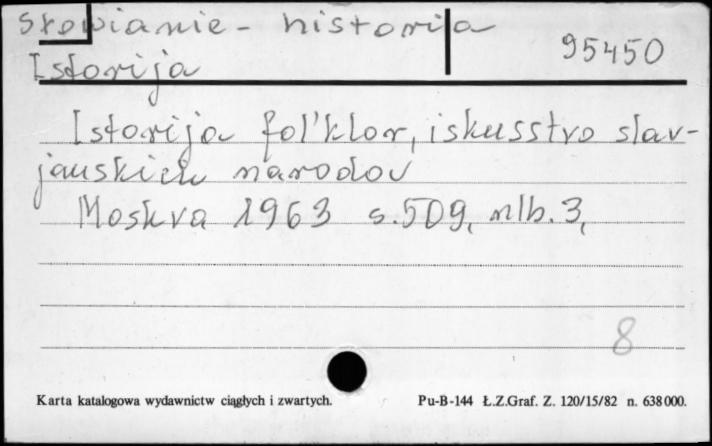 Słowianie - historia
95450
Istorija
Istorija fol'klor, iskusstvo slav-
janskich narodov
Moskva 1963 s. 509, nlb. 3,
8
Karta katalogowa wydawnictw ciągłych i zwartych.
Pu-B-144 Ł.Z.Graf. Z. 120/15/82 n. 638 000.